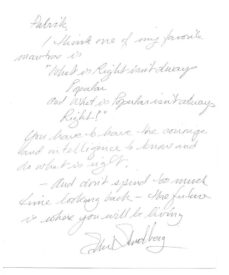 Patrik
I think one of my favorite
mantras is
"What is Right isn't always
Popular
and What is Popular isn't always
Right!"
You have to have the courage
and intelligence to know and
do what is right.
- And don't spend too much
time looking back - the future
is where you will be living